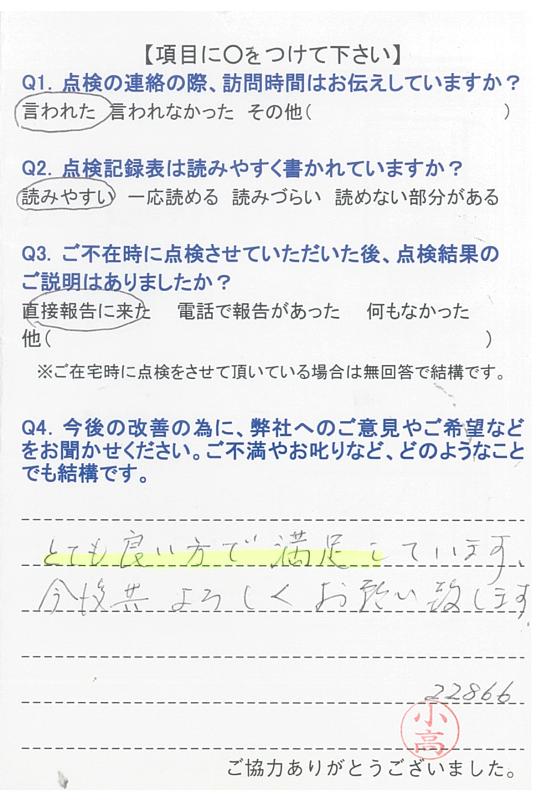 【項目に〇をつけて下さい】
Q1. 点検の連絡の際、訪問時間はお伝えしていますか？
言われた 言われなかった その他( )
Q2. 点検記録表は読みやすく書かれていますか？
読みやすい 一応読める 読みづらい 読めない部分がある
Q3. ご不在時に点検させていただいた後、点検結果の
ご説明はありましたか？
直接報告に来た 電話で報告があった 何もなかった
他( )
※ご在宅時に点検をさせて頂いている場合は無回答で結構です。
Q4. 今後の改善の為に、弊社へのご意見やご希望など
をお聞かせください。ご不満やお叱りなど、どのようなこと
でも結構です。
とても良い方で満足しています、
今後共よろしくお願い致します
22866
小高
ご協力ありがとうございました。